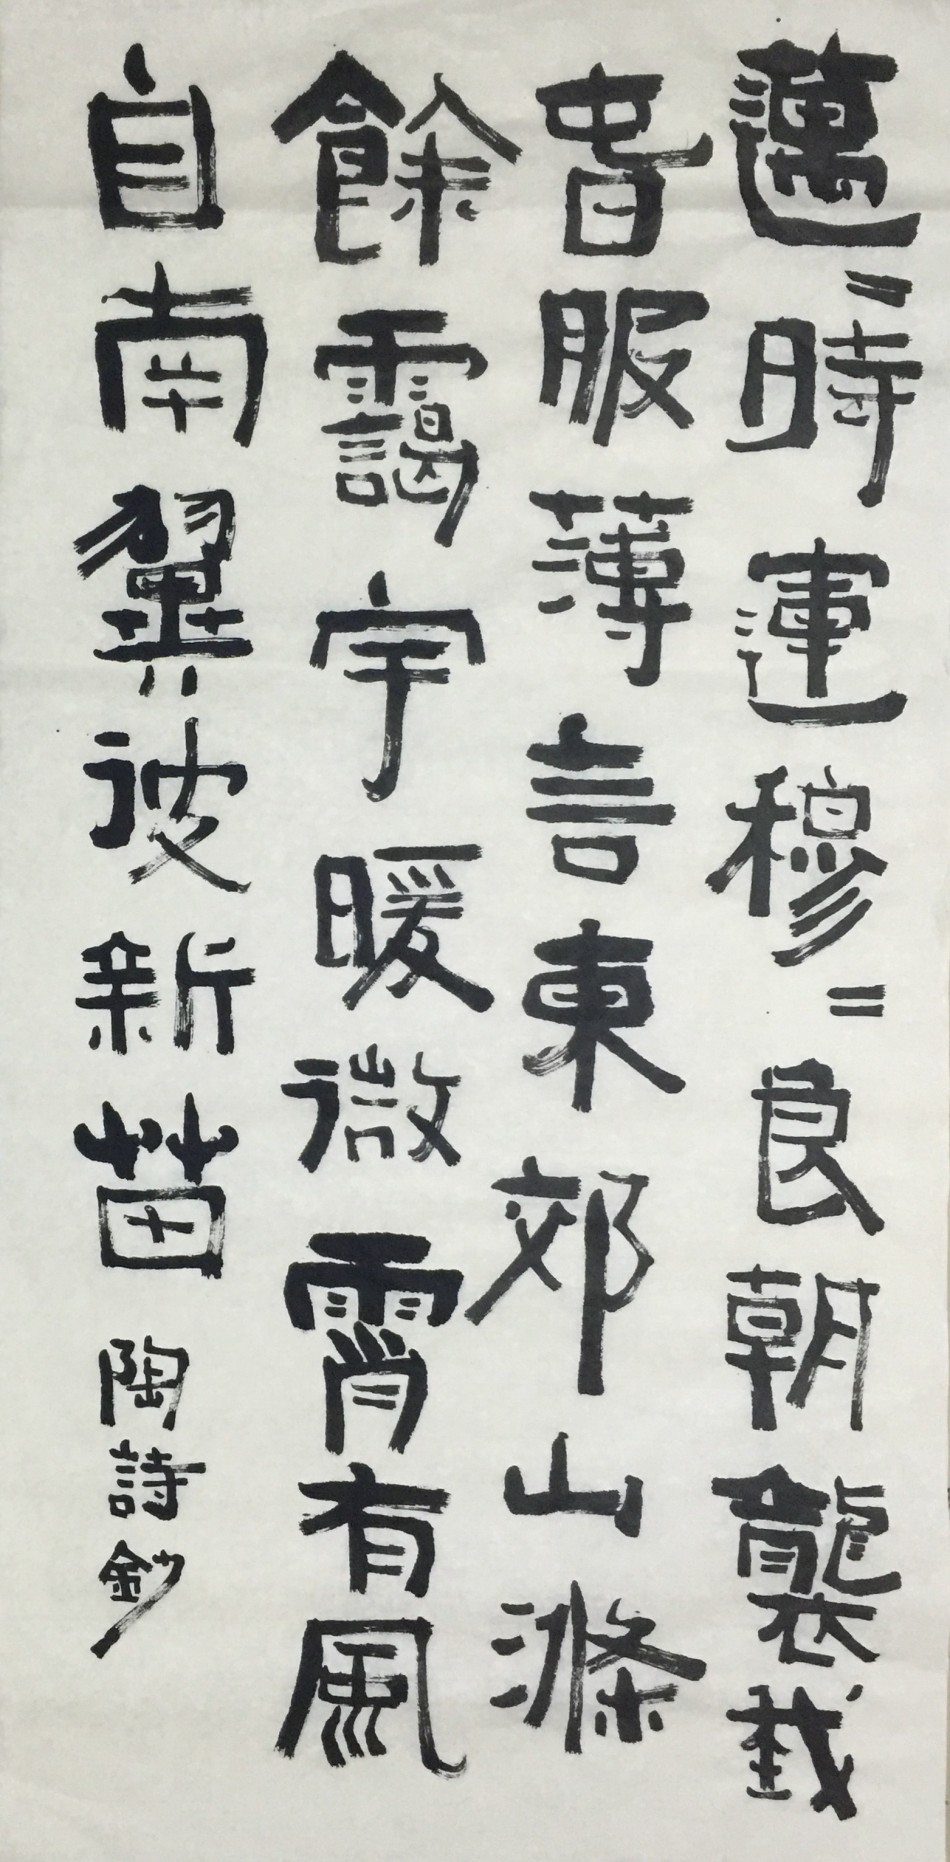 邁=時運穆=良朝襲我
春服薄言東郊山滌
餘靄宇暖微霄有風
自南翼彼新苗 陶詩鈔